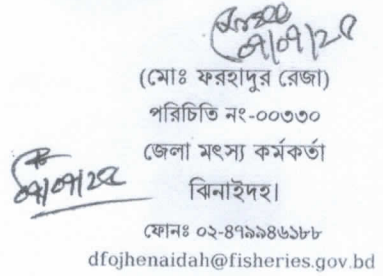 ০৭/০৭/২৫
(মোঃ ফরহাদুর রেজা)
পরিচিতি নং-০০৩৩০
জেলা মৎস্য কর্মকর্তা
০৭/০৭/২৫
ঝিনাইদহ।
ফোনঃ ০২-৪৭৯৯৪৬১৮৮
dfojhenaidah@fisheries.gov.bd